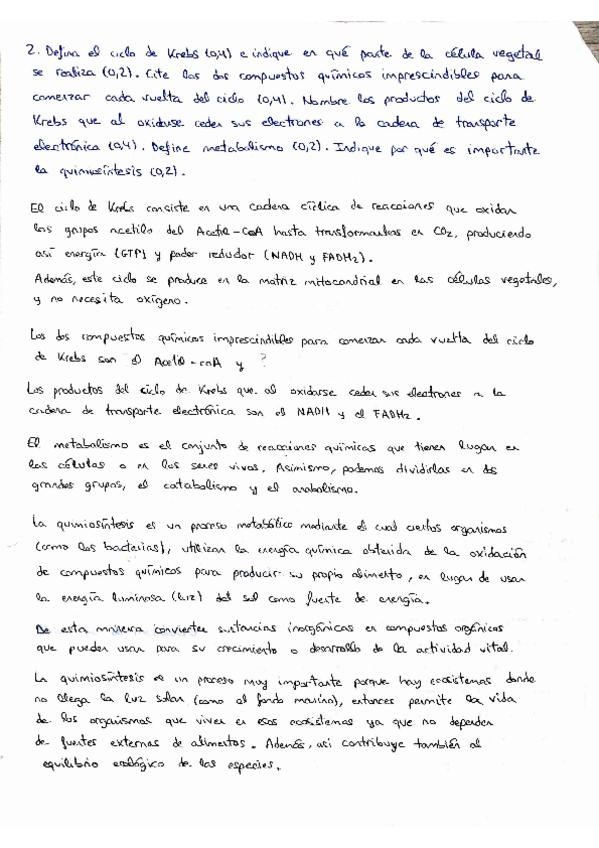 2. Defina el ciclo de Krebs (0,4) e indique en qué parte de la célula vegetal
se realiza (0,2). Cite los dos compuestos químicos imprescindibles para
comenzar cada vuelta del ciclo (0,4). Nombre los productos del ciclo de
Krebs que al oxidarse ceden sus electrones a la cadena de transporte
electrónica (0,4). Define metabolismo (0,2). Indique por qué es importante
la quimiosíntesis (0,2).
El ciclo de Krebs consiste en una cadena cíclica de reacciones que oxidan
los grupos acetilo del Acetil-CoA hasta transformarlos en CO₂, produciendo
así energía (GTP) y poder reductor (NADH y FADH₂).
Además, este ciclo se produce en la matriz mitocondrial en las células vegetales,
y no necesita oxígeno.
Los dos compuestos químicos imprescindibles para comenzar cada vuelta del ciclo
de Krebs son el Acetil-coA y ?
Los productos del ciclo de Krebs que al oxidarse ceden sus electrones a la
cadena de transporte electrónica son el NADH y el FADH₂.
El metabolismo es el conjunto de reacciones químicas que tienen lugar en
las células o en los seres vivos. Asimismo, podemos dividirlas en dos
grandes grupos, el catabolismo y el anabolismo.
La quimiosíntesis es un proceso metabólico mediante el cual ciertos organismos
(como las bacterias), utilizan la energía química obtenida de la oxidación
de compuestos químicos para producir su propio alimento, en lugar de usar
la energía luminosa (luz) del sol como fuente de energía.
De esta manera convierten sustancias inorgánicas en compuestos orgánicos
que pueden usar para su crecimiento o desarrollo de la actividad vital.
La quimiosíntesis es un proceso muy importante porque hay ecosistemas donde
no llega la luz solar (como al fondo marino), entonces permite la vida
de los organismos que viven en esos ecosistemas ya que no dependen
de fuentes externas de alimentos. Además, así contribuye también al
equilibrio ecológico de las especies.